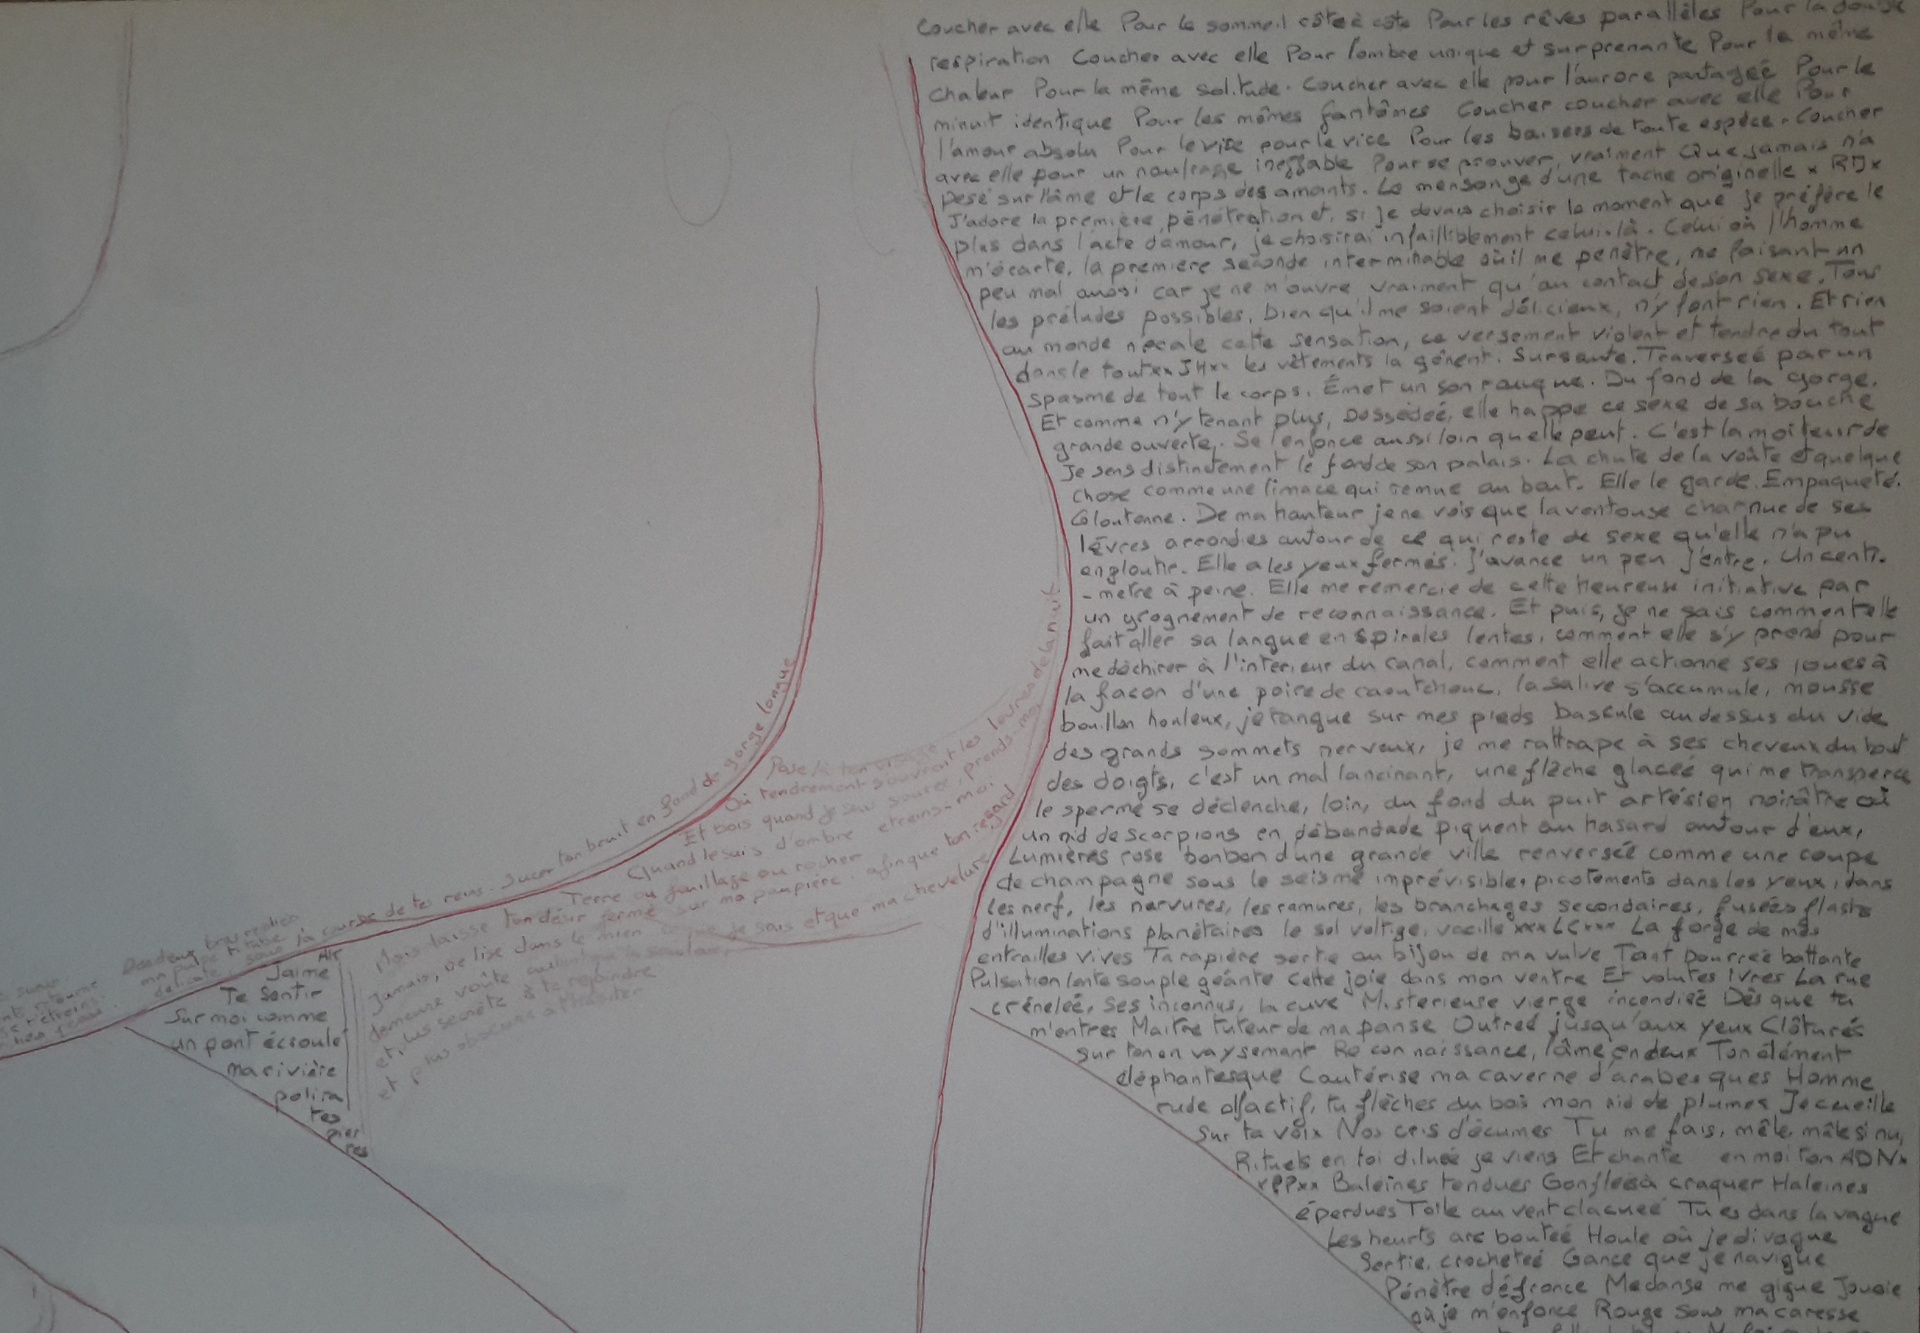 Coucher avec elle Pour le sommeil côte à côte Pour les rêves parallèles Pour la double
respiration Coucher avec elle Pour l'ombre unique et surprenante Pour la même
chaleur Pour la même solitude. Coucher avec elle pour l'aurore partagée Pour le
minuit identique Pour les mêmes fantômes Coucher coucher avec elle Pour
l'amour absolu Pour le vice pour le vice Pour les baisers de toute espèce. Coucher
avec elle pour un naufrage ineffable Pour se prouver, vraiment Que jamais n'a
pesé sur l'âme et le corps des amants. Le mensonge d'une tache originelle x RD x
J'adore la première pénétration et, si je devais choisir le moment que je préfère le
plus dans l'acte d'amour, je choisirai infailliblement celui-là. Celui où l'homme
m'écarte, la première seconde interminable où il me penètre, me faisant un
peu mal aussi car je ne m'ouvre vraiment qu'au contact de son sexe. Tous
les préludes possibles, bien qu'il me soient délicieux, n'y font rien. Et rien
au monde n'égale cette sensation, ce versement violent et tendre du tout
dans le tout xx JH xx les vêtements la gênent. Sursaute. Traverseé par un
spasme de tout le corps. Émet un son rauque. Du fond de la gorge.
Et comme n'y tenant plus, possédeé, elle happe ce sexe de sa bouche
grande ouverte. Se l'enfonce aussi loin qu'elle peut. C'est la moiteur de
Je sens distinctement le fond de son palais. La chute de la voûte et quelque
chose comme une limace qui remue au bout. Elle le garde. Empaqueté.
Gloutonne. De ma hauteur je ne vois que la ventouse charnue de ses
lèvres arrondies autour de ce qui reste de sexe qu'elle n'a pu
engloutir. Elle a les yeux fermés. J'avance un peu J'entre. Un centi-
-mètre à peine. Elle me remercie de cette heureuse initiative par
un grognement de reconnaissance. Et puis, je ne sais comment elle
fait aller sa langue en spirales lentes, comment elle s'y prend pour
me déchirer à l'intérieur du canal, comment elle actionne ses joues à
la façon d'une poire de caoutchouc, la salive s'accumule, mousse
bouillon honteux, je tangue sur mes pieds bascule au dessus du vide
des grands sommets nerveux, je me rattrape à ses cheveux du bout
des doigts, c'est un mal lancinant, une flèche glaceé qui me transperce
le sperme se déclenche, loin, du fond du puit artésien noirâtre où
un nid de scorpions en débandade piquent au hasard autour d'eux,
Lumières rose bonbon d'une grande ville renversée comme une coupe
de champagne sous le seisme imprévisible, picotements dans les yeux, dans
les nerf, les nervures, les ramures, les branchages secondaires, fusées flashs
d'illuminations planétaires le sol voltige, vacille xxx LC xxx La forge de mes
entrailles vives Ta rapière sertie au bijou de ma vulve Tant pourreé battante
Pulsation lente souple géante Cette joie dans mon ventre Et volutes Ivres La rue
créneleé, Ses inconnus, la cuve Misterieuse vierge incendiée Dès que tu
m'entres Maître tuteur de ma panse Outreé jusqu'aux yeux Clôturés
sur ton en va y semant Re con naissance, l'âme en deux Ton élément
éléphantesque Cautérise ma caverne d'arabesques Homme
rude olfactif, tu flèches du bois mon nid de plumes Je cueille
sur ta voix Nos cris d'écumes Tu me fais, mêle, mâle si nu,
Rituels en toi dilueé je viens Et chante en moi ton ADN x
x PP xx Baleines tendues Gonflées à craquer Haleines
éperdues Toile au vent claqueé Tu es dans la vague
Les heurts arc bouteé Houle où je divague
Sertie, crocheteé Gance que je navigue
Pénètre défronce Me danse me gigue Jouoie
où je m'enfonce Rouge Sous ma caresse
Pose là ton visage
Où tendrement s'ouvrait les lèvres de la nuit
Et bois quand je suis source, prends-moi
Quand le suis d'ombre etreins-moi
Terre ou feuillage ou rocher
Mais laisse ton désir fermé sur ma paupière. afin que ton regard
Jamais, ne lise dans le mien ce que je sais et que ma chevelure
demeure voûte
et, plus secrète à te rejoindre
et plus obscure à
sous la courbe de tes reins. Sucer ton bruit en fond de gorge longue
J'aime
Te Sentir
Sur moi comme
un pont écroulé
ma rivière
polira
tes
pier
res